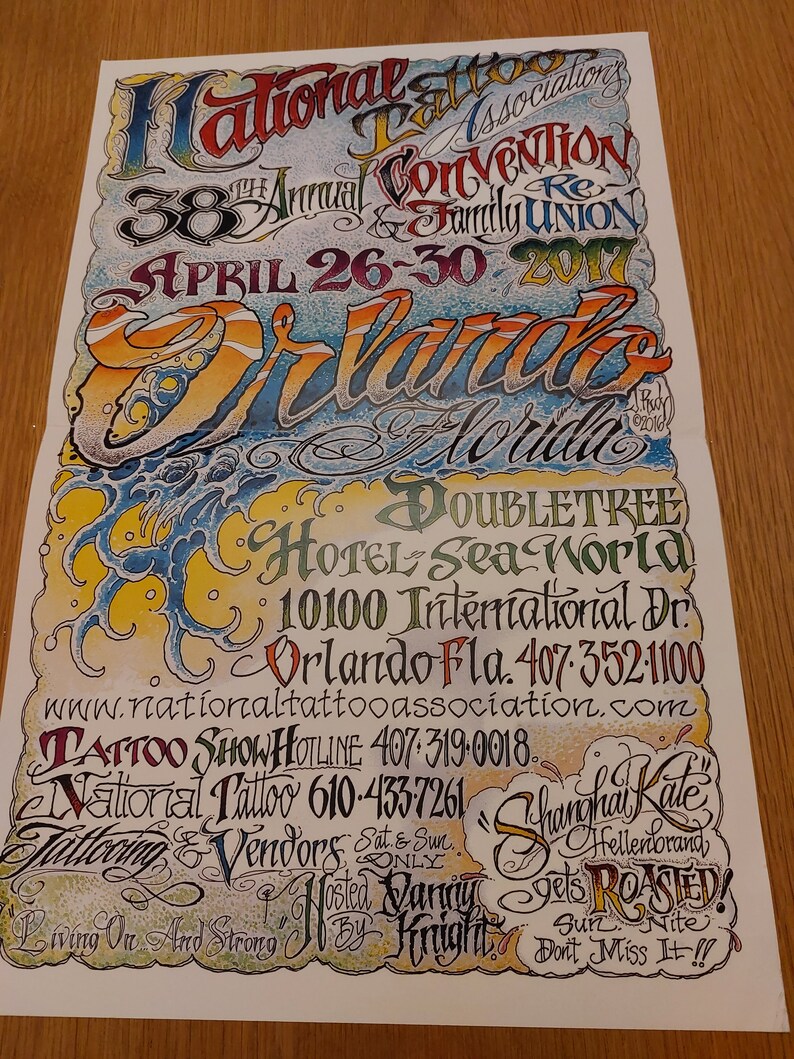 National Tattoo
Associations
38TH Annual Convention
& Family Re-Union
April 26-30 2017
Orlando
Florida
©2016
Doubletree
Hotel - Sea World
10100 International Dr.
Orlando Fla. 407·352·1100
www.nationaltattooassociation.com
Tattoo Show Hotline 407·319·0018.
National Tattoo 610·433·7261
Tattooing & Vendors Sat. & Sun. Only
"Living On...And Strong" Hosted By Danny Knight.
"Shanghai Kate"
Hellenbrand
gets Roasted!
Sun. Nite
Don't Miss It!!